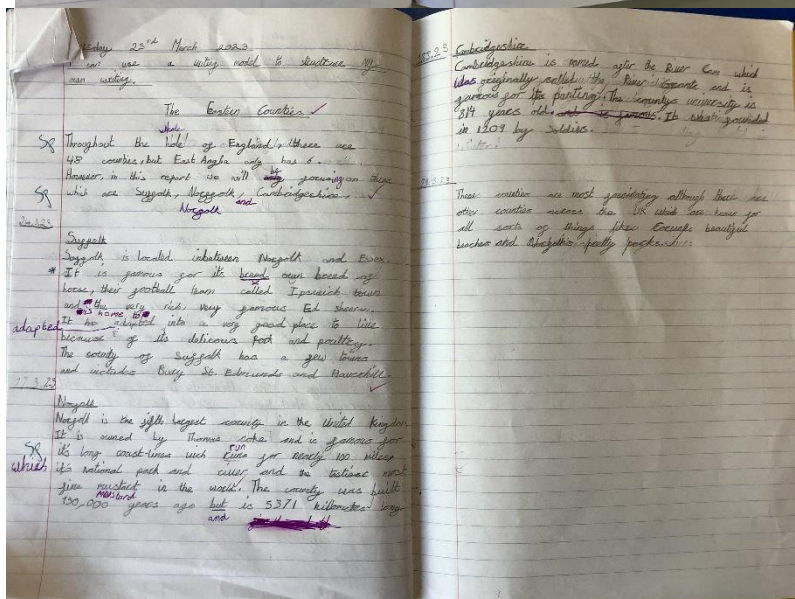 sday 23rd March 2023
can use a writing model to structure my
own writing.
The Eastern Counties
whole
Sp Throughout the hole of England, there are
48 counties, but East Anglia only has 6
However, in this report we will be focusing on three
Sp which are Suffolk, Norffolk, Cambridgeshire.
Norfolk and
Suffolk
Suffolk is located inbetween Norfolk and Essex.
* It is famous for it's breed own breed of
horse, their football team called Ipswich town
and the very rich, very famous Ed sheeran.
is home to
adapted It has adapted into a very good place to live
because of its delicious pork and poultry.
The county of Suffolk has a few towns
and includes Bury St. Edmunds and Haverhill.
Norfolk
Norfolk is the fifth largest county in the United Kingdom
It is owned by Thomas coke and is famous for
run
Sp it's long coast-lines wich runs for nearly 100 miles
which it's national park and and the tastiest most
fine mustart in the world. The county was built
mustard
190,000 years ago but is 5371 kilometres long
and
23 Cambridgeshire
Cambridgeshire is named after the River Cam which
was originally called the River Grante and is
famous for its punting. The county's university is
814 years old. It was founded
in 1209 by
These counties are most fascinating although there are
other counties across the UK which are know for
all sorts of things like: beautiful
beaches and pretty parks.